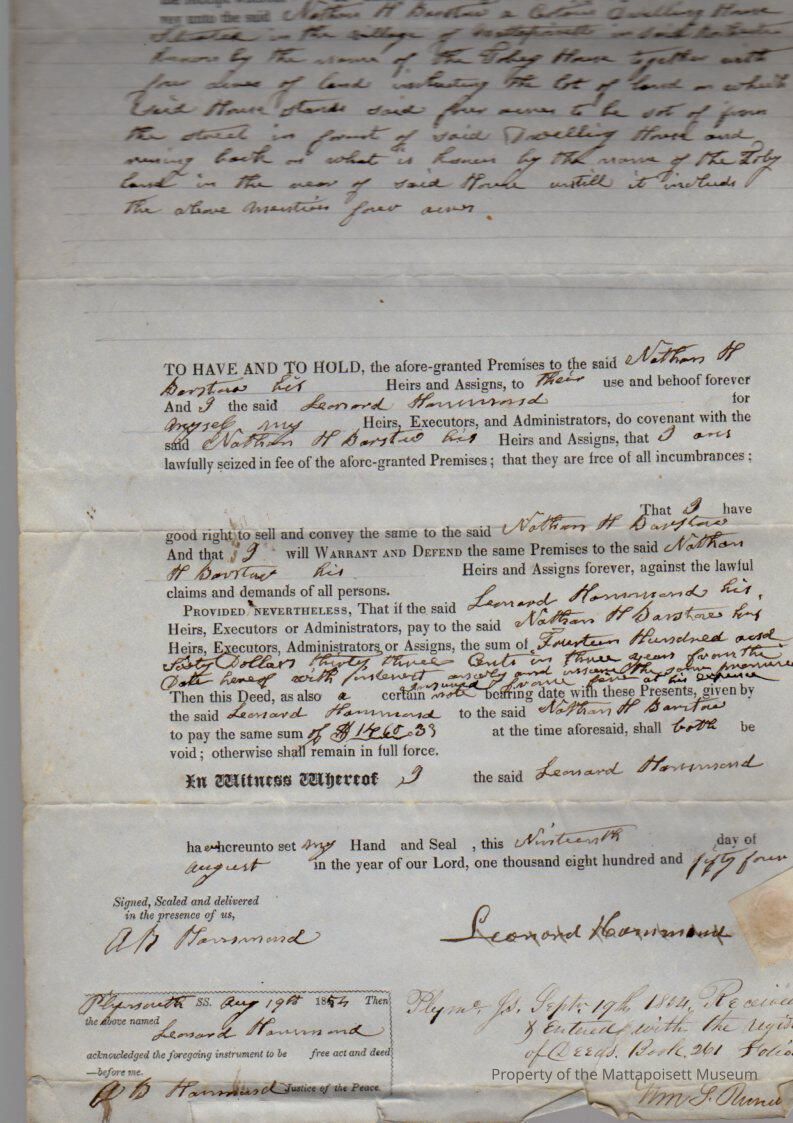 vey unto the said Nathan H Barstow a Certain Dwelling House
Situated in the village of Mattapoisett in said Rochester
known by the name of the Tobey House together with
four acres of land including the lot of land on which
said House stands said four acres to be sot of from
the street in front of said Dwelling House and
runing back on what is known by the name of the Toby
land in the rear of said House untill it includs
the above mention four acres
TO HAVE AND TO HOLD, the afore-granted Premises to the said Nathan H
Barstow his Heirs and Assigns, to their use and behoof forever
And I the said Leonard Hammond for
myself my Heirs, Executors, and Administrators, do covenant with the
said Nathan H Barstow his Heirs and Assigns, that I am
lawfully seized in fee of the afore-granted Premises; that they are free of all incumbrances;
That I have
good right to sell and convey the same to the said Nathan H Barstow
And that I will WARRANT AND DEFEND the same Premises to the said Nathan
H Barstow his Heirs and Assigns forever, against the lawful
claims and demands of all persons.
PROVIDED NEVERTHELESS, That if the said Leonard Hammond his,
Heirs, Executors or Administrators, pay to the said Nathan H Barstow his
Heirs, Executors, Administrators or Assigns, the sum of Fourteen Hundred and
Sixty Dollars thirty three Cents in three years from the
Date hereof with interest and the same premises
insured from fire at his expence
Then this Deed, as also a certain note bearing date with these Presents, given by
the said Leonard Hammond to the said Nathan H Barstow
to pay the same sum of $1460.33 at the time aforesaid, shall both be
void; otherwise shall remain in full force.
In Witness Whereof I the said Leonard Hammond
have hereunto set my Hand and Seal, this Ninteenth day of
August in the year of our Lord, one thousand eight hundred and fifty four
Signed, Sealed and delivered
in the presence of us,
A B Hammond
Leonard Hammond
Plymouth SS. Aug 19th 1854 Then
the above named
Leonard Hammond
acknowledged the foregoing instrument to be free act and deed
—before me.
A B Hammond Justice of the Peace.
Plymo. Ss. Sept. 19th, 1854, Received
& Entered with the
of Deeds. Book, 261 Folio
Wm S.
Property of the Mattapoisett Museum